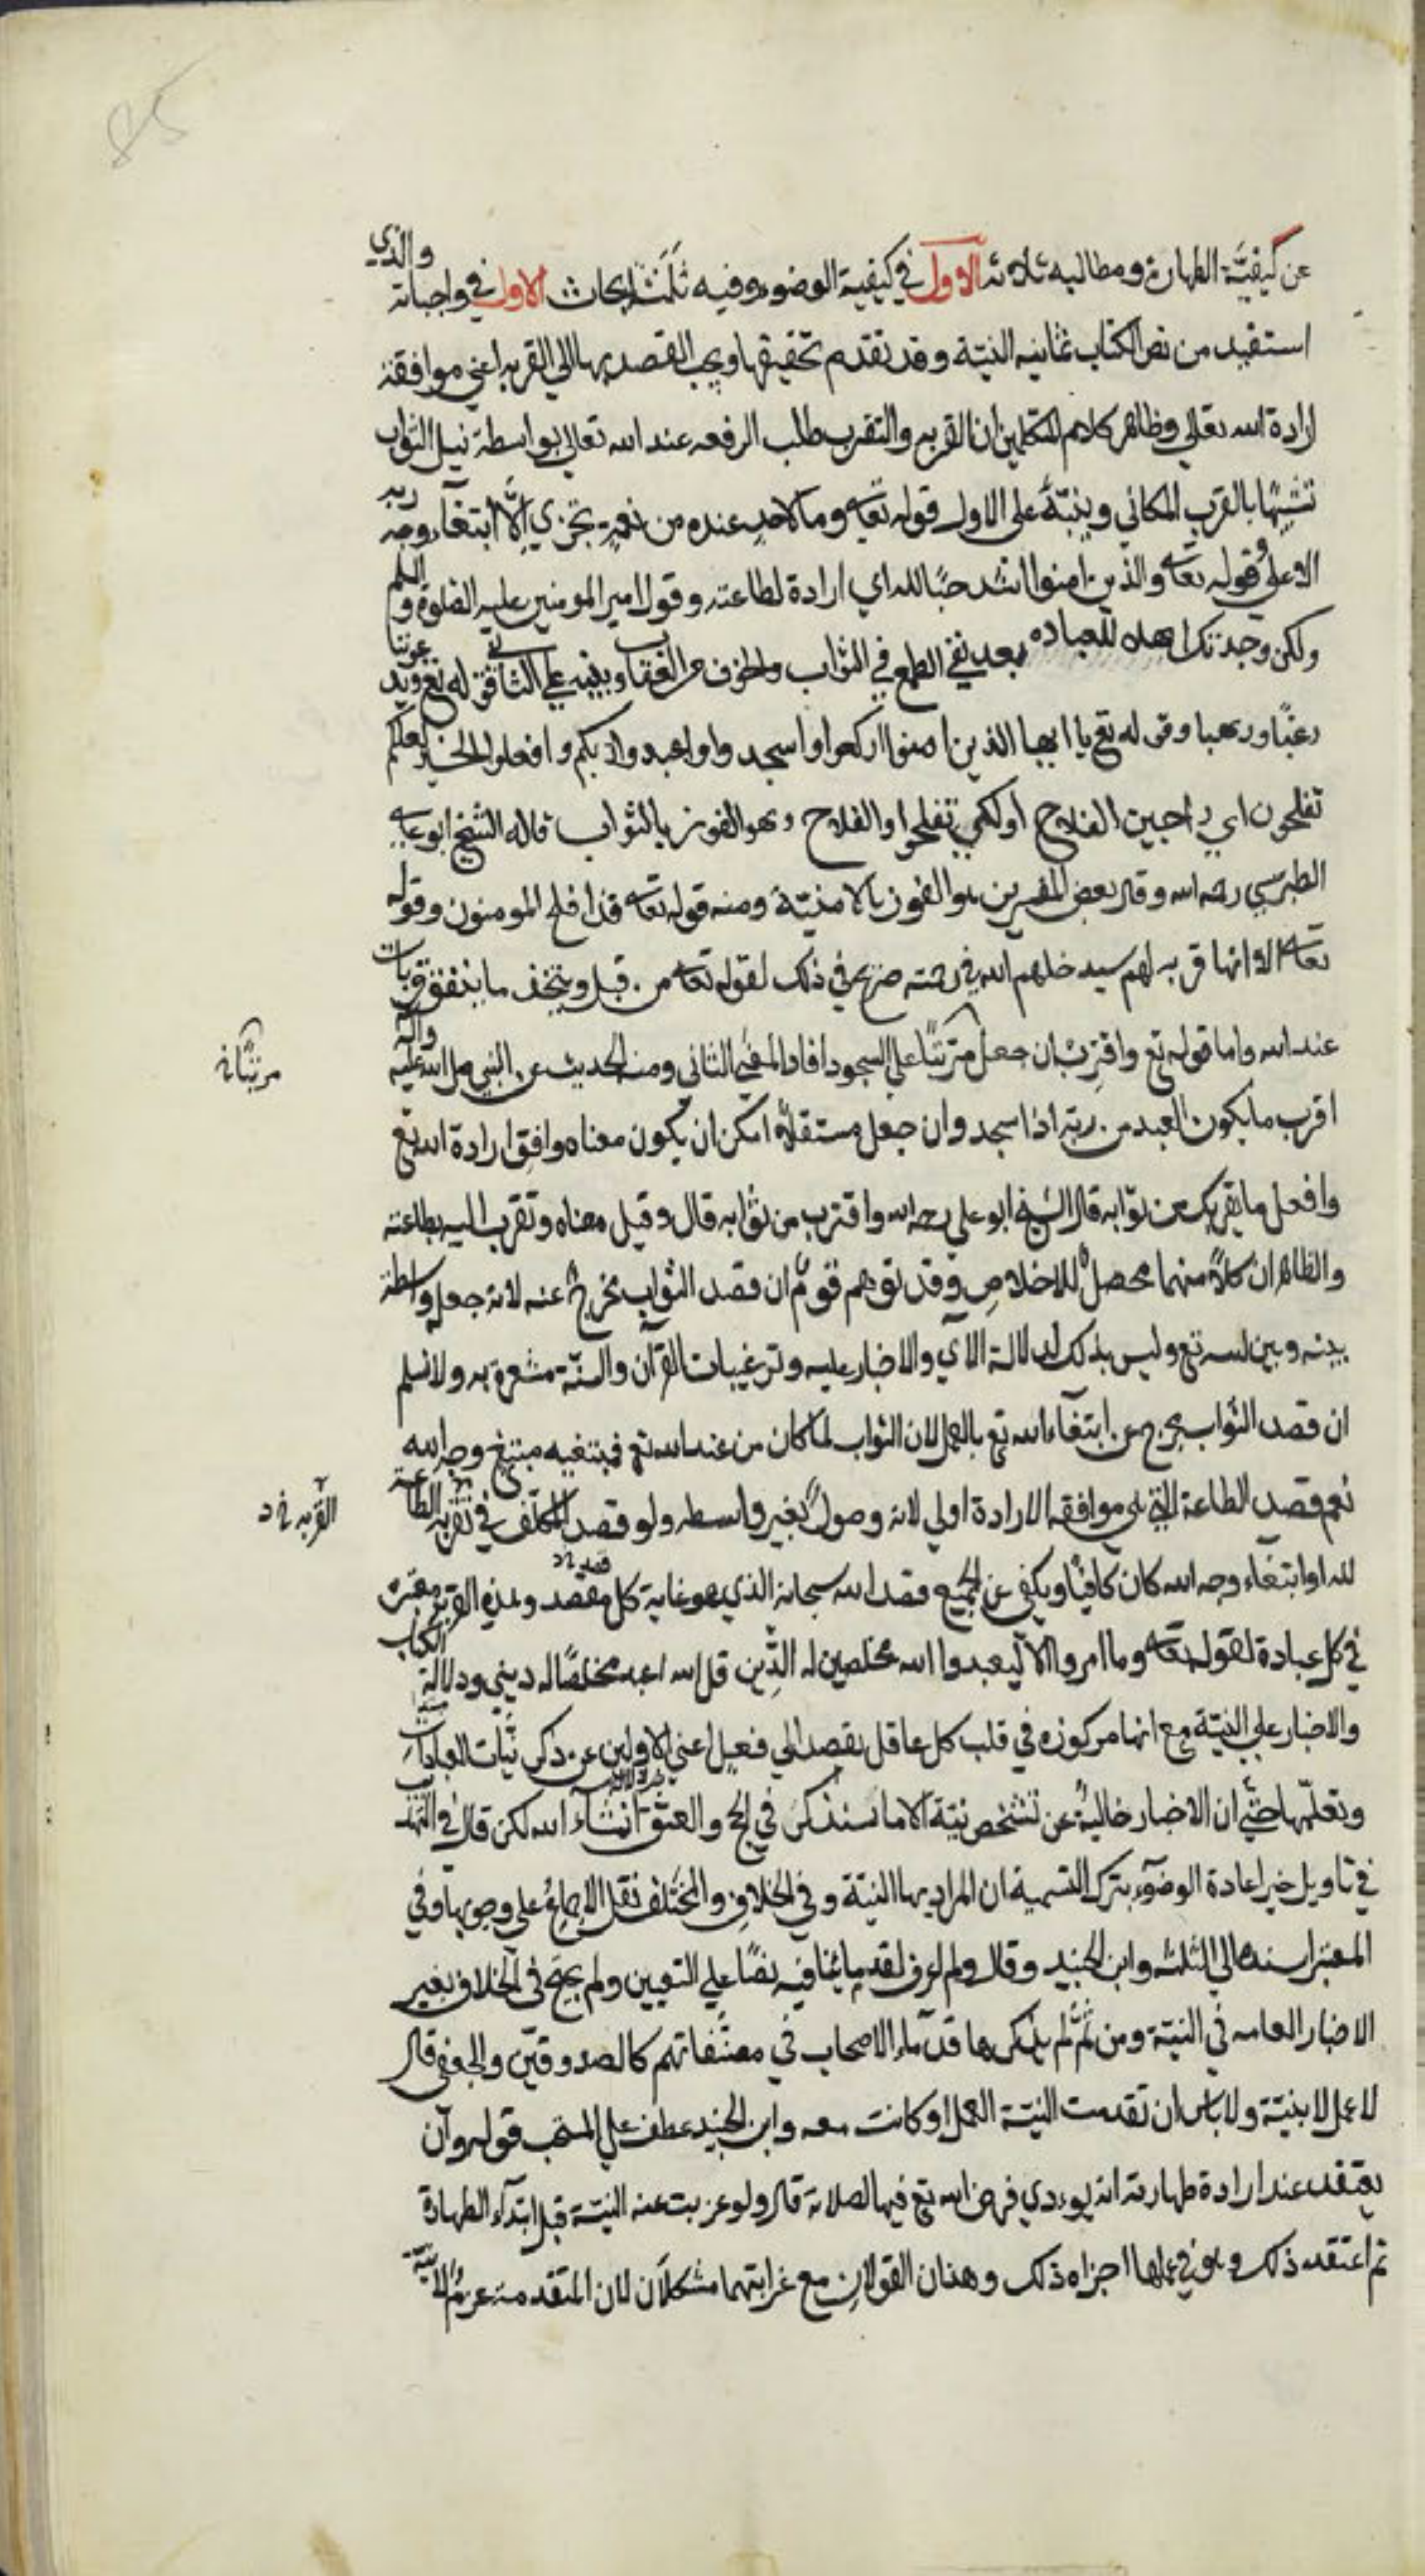 85
عن كيفيّة الطهارة ومطالبه ثلاثة الاول في كيفية الوضوء وفيه ثلثة ابحاث الاول في واجباته والذي
استفيد من نص الكتاب ثمانية النيّة وقد تقدم تحقيقها ويجب القصد بها الي القربه اعني موافقة
ارادة الله تعالي وظاهر كلام المتكلمين ان القربه والتقرب طلب الرفعه عند الله تعالي بواسطة نيل الثواب
تشبّها بالقرب المكاني وينبّه علي الاول قوله تعا وما لاحد عنده من نعمة تجزي الّا ابتغآء وجه ربه
الاعلي وقوله تعا والذين امنوا اشد حبّا لله اي ارادة لطاعته وقول امير المومنين عليه الصلوة والسلم
ولكن وجدتك اهلا للعباده بعد نفي الطمع في الثواب والخوف من العقاب وينبه علي الثاني قوله تع ويدعوننا
رغبًا ورهبا وقوله تع يا ايها الذين امنوا اركعوا واسجدوا واعبدوا ربكم وافعلوا الخير لعلكم
تفلحون اي راجين الفلاح او لكي تفلحوا والفلاح وهو الفوز بالثواب قاله الشيخ ابو علي
الطبرسي رحمه الله وقال بعض المفسرين هو الفوز بالامنيّة ومنه قوله تعا قد افلح المومنون وقوله
تعا الا انها قربه لهم سيدخلهم الله في رحمته صريح في ذلك لقوله تعا من قبل ويتخذ ما ينفق قربات
عند الله واما قوله تع واقترب ان جعل مترتبًا علي السجود افاد المعني الثاني ومنه الحديث عن النبي صلي الله عليه واله
مرتبًا نه
اقرب ما يكون العبد من ربّه اذا سجد وان جعل مستقلًّا امكن ان يكون معناه وافق ارادة الله تع
وافعل ما يقربك من ثوابه قال الشيخ ابو علي رحمه الله واقترب من ثوابه قال وقيل معناه وتقرب اليه بطاعته
والظاهر ان كلًّا منهما محصلٌ للاخلاص وقد توهم قومٌ ان قصد الثواب يخرج عنه لانه جعله واسطة
بينه وبين الله تع وليس بذلك لدلالة الآي والاخبار عليه وترغيبات القرآن والسنّة مشعرة به ولا نسلم
ان قصد الثواب يخرج عن ابتغآء الله تع بالعمل لان الثواب لما كان من عند الله تع فمبتغيه مبتغ وجه الله
نعم قصد الطاعة التي هي موافقه الارادة اولي لانه وصولٌ بغير واسطه ولو قصد المكلّف في تقربه الطاعة
القربه خ د
لله او ابتغاء وجه الله كان كافيًا ويكفي عن الجميع قصد الله سبحانه الذي هو غاية كل مقصد وهذه القربة معتبره
في كل عبادة لقوله تعا وما امروا الا ليعبدوا الله مخلصين له الدّين قل الله اعبد مخلصًا له ديني ودلالة الكتاب
والاخبار علي النيّة مع انها مركوزه في قلب كل عاقل يقصد الي فعل اغني الاولين عن ذكر نيّات العبادات
وتعلّمها حتّي ان الاخبار خاليةٌ عن تشخص نيّة الا ما سنذكر في الحج والعتق ان شآء الله لكن قال في التهذيب
في تاويل خبر اعادة الوضوء بترك التسمية ان المراد بها النيّة وفي الخلاف والمختلف نقل الاجماع علي وجوبها وفي
المعتبر اسنده الي الثلثه وابن الجنيد وقال ولم اعرف لقدمائنا فيه نصًّا علي التعيين ولم يحتج في الخلاف بغير
الاخبار العامه في النيّة ومن ثَمَّ لم يذكرها قدماء الاصحاب في مصنّفاتهم كالصدوقين والجعفي قال
لا عمل الا بنيّة ولا باس ان تقدمت النيّة العمل او كانت معه وابن الجنيد عطف علي المستحب قوله وان
يعتقد عند ارادة طهارته انه يوءدي فرض الله تع فيها لصلاته قال ولو عزبت عنه النيّة قبل ابتدآء الطهارة
ثم اعتقد ذلك وهو في عملها اجزاه ذلك وهذان القولان مع غرابتهما مشكلان لان المتقدمه عزمٌ لا نيّة